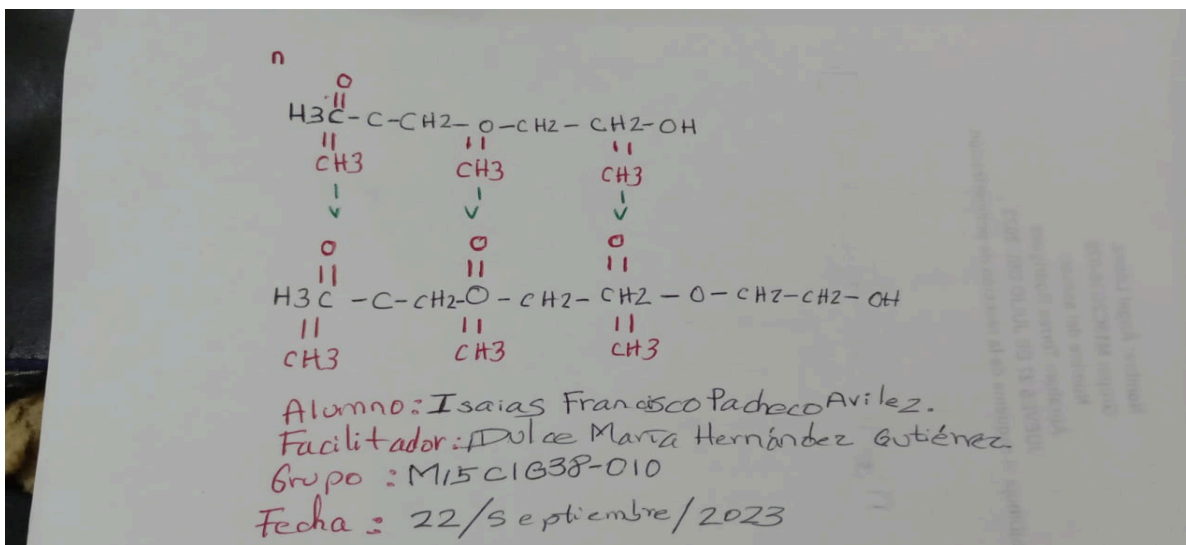 n
O
||
H3C-C-CH2-O-CH2-CH2-OH
|| || ||
CH3 CH3 CH3
O O O
|| || ||
H3C-C-CH2-O-CH2-CH2-O-CH2-CH2-OH
|| || ||
CH3 CH3 CH3
Alumno: Isaias Francisco Pacheco Avilez.
Facilitador: Dulce María Hernández Gutiérrez
Grupo: M15C1G38-010
Fecha: 22/Septiembre/2023